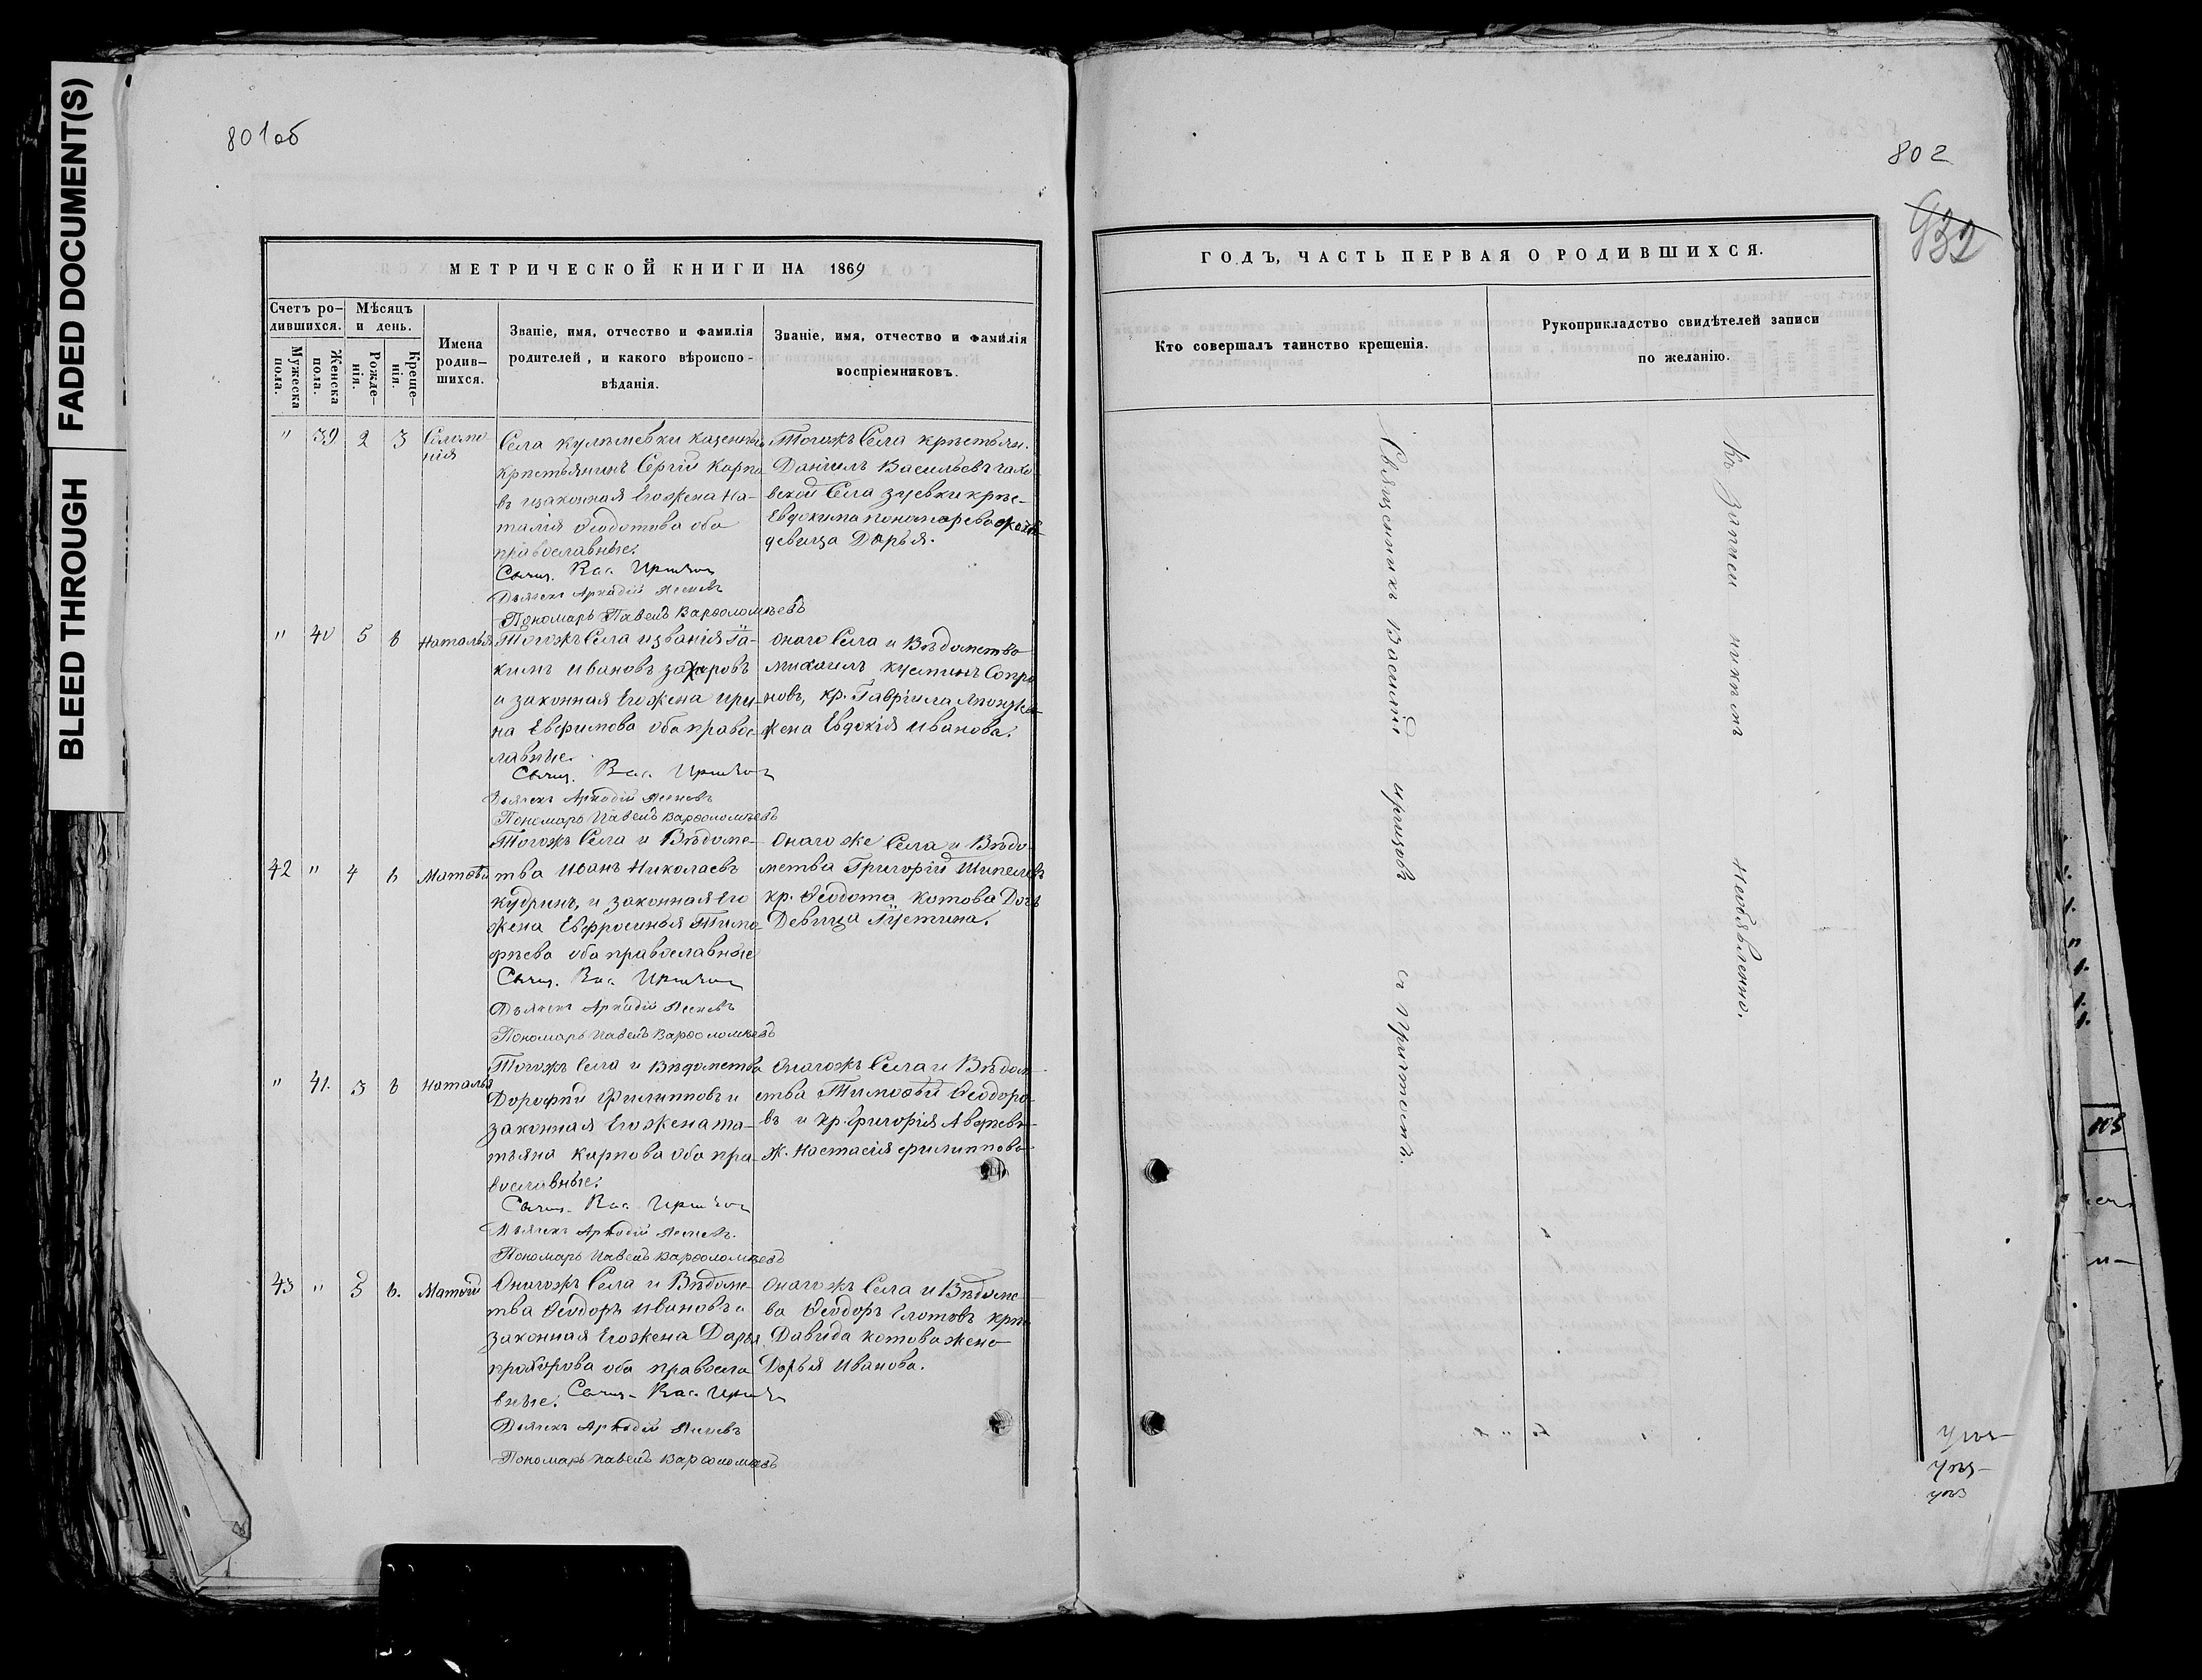 FADED DOCUMENT(S)
BLEED THROUGH
801об
МЕТРИЧЕСКОЙ КНИГИ НА 1869
Счетъ ро-
дившихся.
Мѣсяцъ
и день.
Мужеска
пола.
Женска
пола.
Рожде-
нія.
Креще-
нія.
Имена
родив-
шихся.
Званіе, имя, отчество и фамилія
родителей, и какого вѣроиспо-
вѣданія.
Званіе, имя, отчество и фамилія
воспріемниковъ.
" 39 2 3 Соломо
нія
Села
крестьянинъ Сергій Карпо
въ и законная Его жена На-
талія Ѳеодотова оба
православные.
Свящ. Вас.
Дьячекъ Аркадій
Пономарь Павелъ Варѳоломѣевъ
Тогожъ Села крестьян.
Даніилъ Васильевъ
Села Зуевки крес-
Евдокима Пономарева
девица Дарья.
" 40 5 6 Наталья
Тогожъ Села и званія Іа-
кимъ Ивановъ Захаровъ
и законная Его жена Ири-
на Евфимова оба правос-
лавные.
Свящ. Вас.
Дьячекъ Аркадій
Пономарь Павелъ Варѳоломѣевъ
онаго Села и Вѣдомства
Михаилъ
новъ, кр. Гавріила
жена Евдокія Иванова.
42 " 4 6 Матвѣй
Тогожъ Села и Вѣдомс-
тва Иванъ Николаевъ
Кудринъ, и законная Его
жена Евфросинья Тимо
фѣева оба православные
Свящ. Вас.
Дьячекъ Аркадій
Пономарь Павелъ Варѳоломѣевъ
Онаго же Села и Вѣдо-
мства Григорій Шипелевъ
кр. Ѳеодота Котова Дочь
Девица Іустина.
" 41. 3 6 Наталья
Тогожъ Села и Вѣдомства
Дорофѣй Филипповъ и
законная Его жена Та-
тьяна Карпова оба пра-
вославные.
Свящ. Вас.
Дьячекъ Аркадій
Пономарь Павелъ Варѳоломѣевъ
Онагожъ Села и Вѣдом-
ства Тимоѳѣй Ѳеодоро-
въ и кр. Григорія
ж. Настасія Филиппова
43 " 3 6. Матвѣй
Онагожъ Села и Вѣдомс-
тва Ѳеодоръ Ивановъ и
законная Его жена Дарья
Прохорова оба правосла-
вные. Свящ. Вас.
Дьячекъ Аркадій
Пономарь Павелъ Варѳоломѣевъ
Онагожъ Села и Вѣдомс-
ва Ѳеодоръ Глотовъ кре
Давида Котова жена
Дарья Иванова.
802
932
ГОДЪ, ЧАСТЬ ПЕРВАЯ О РОДИВШИХСЯ.
Кто совершалъ таинство крещенія.
Рукоприкладство свидѣтелей записи
по желанію.
Священникъ Василій съ причтомъ.
Къ записи никѣмъ необъявленно.